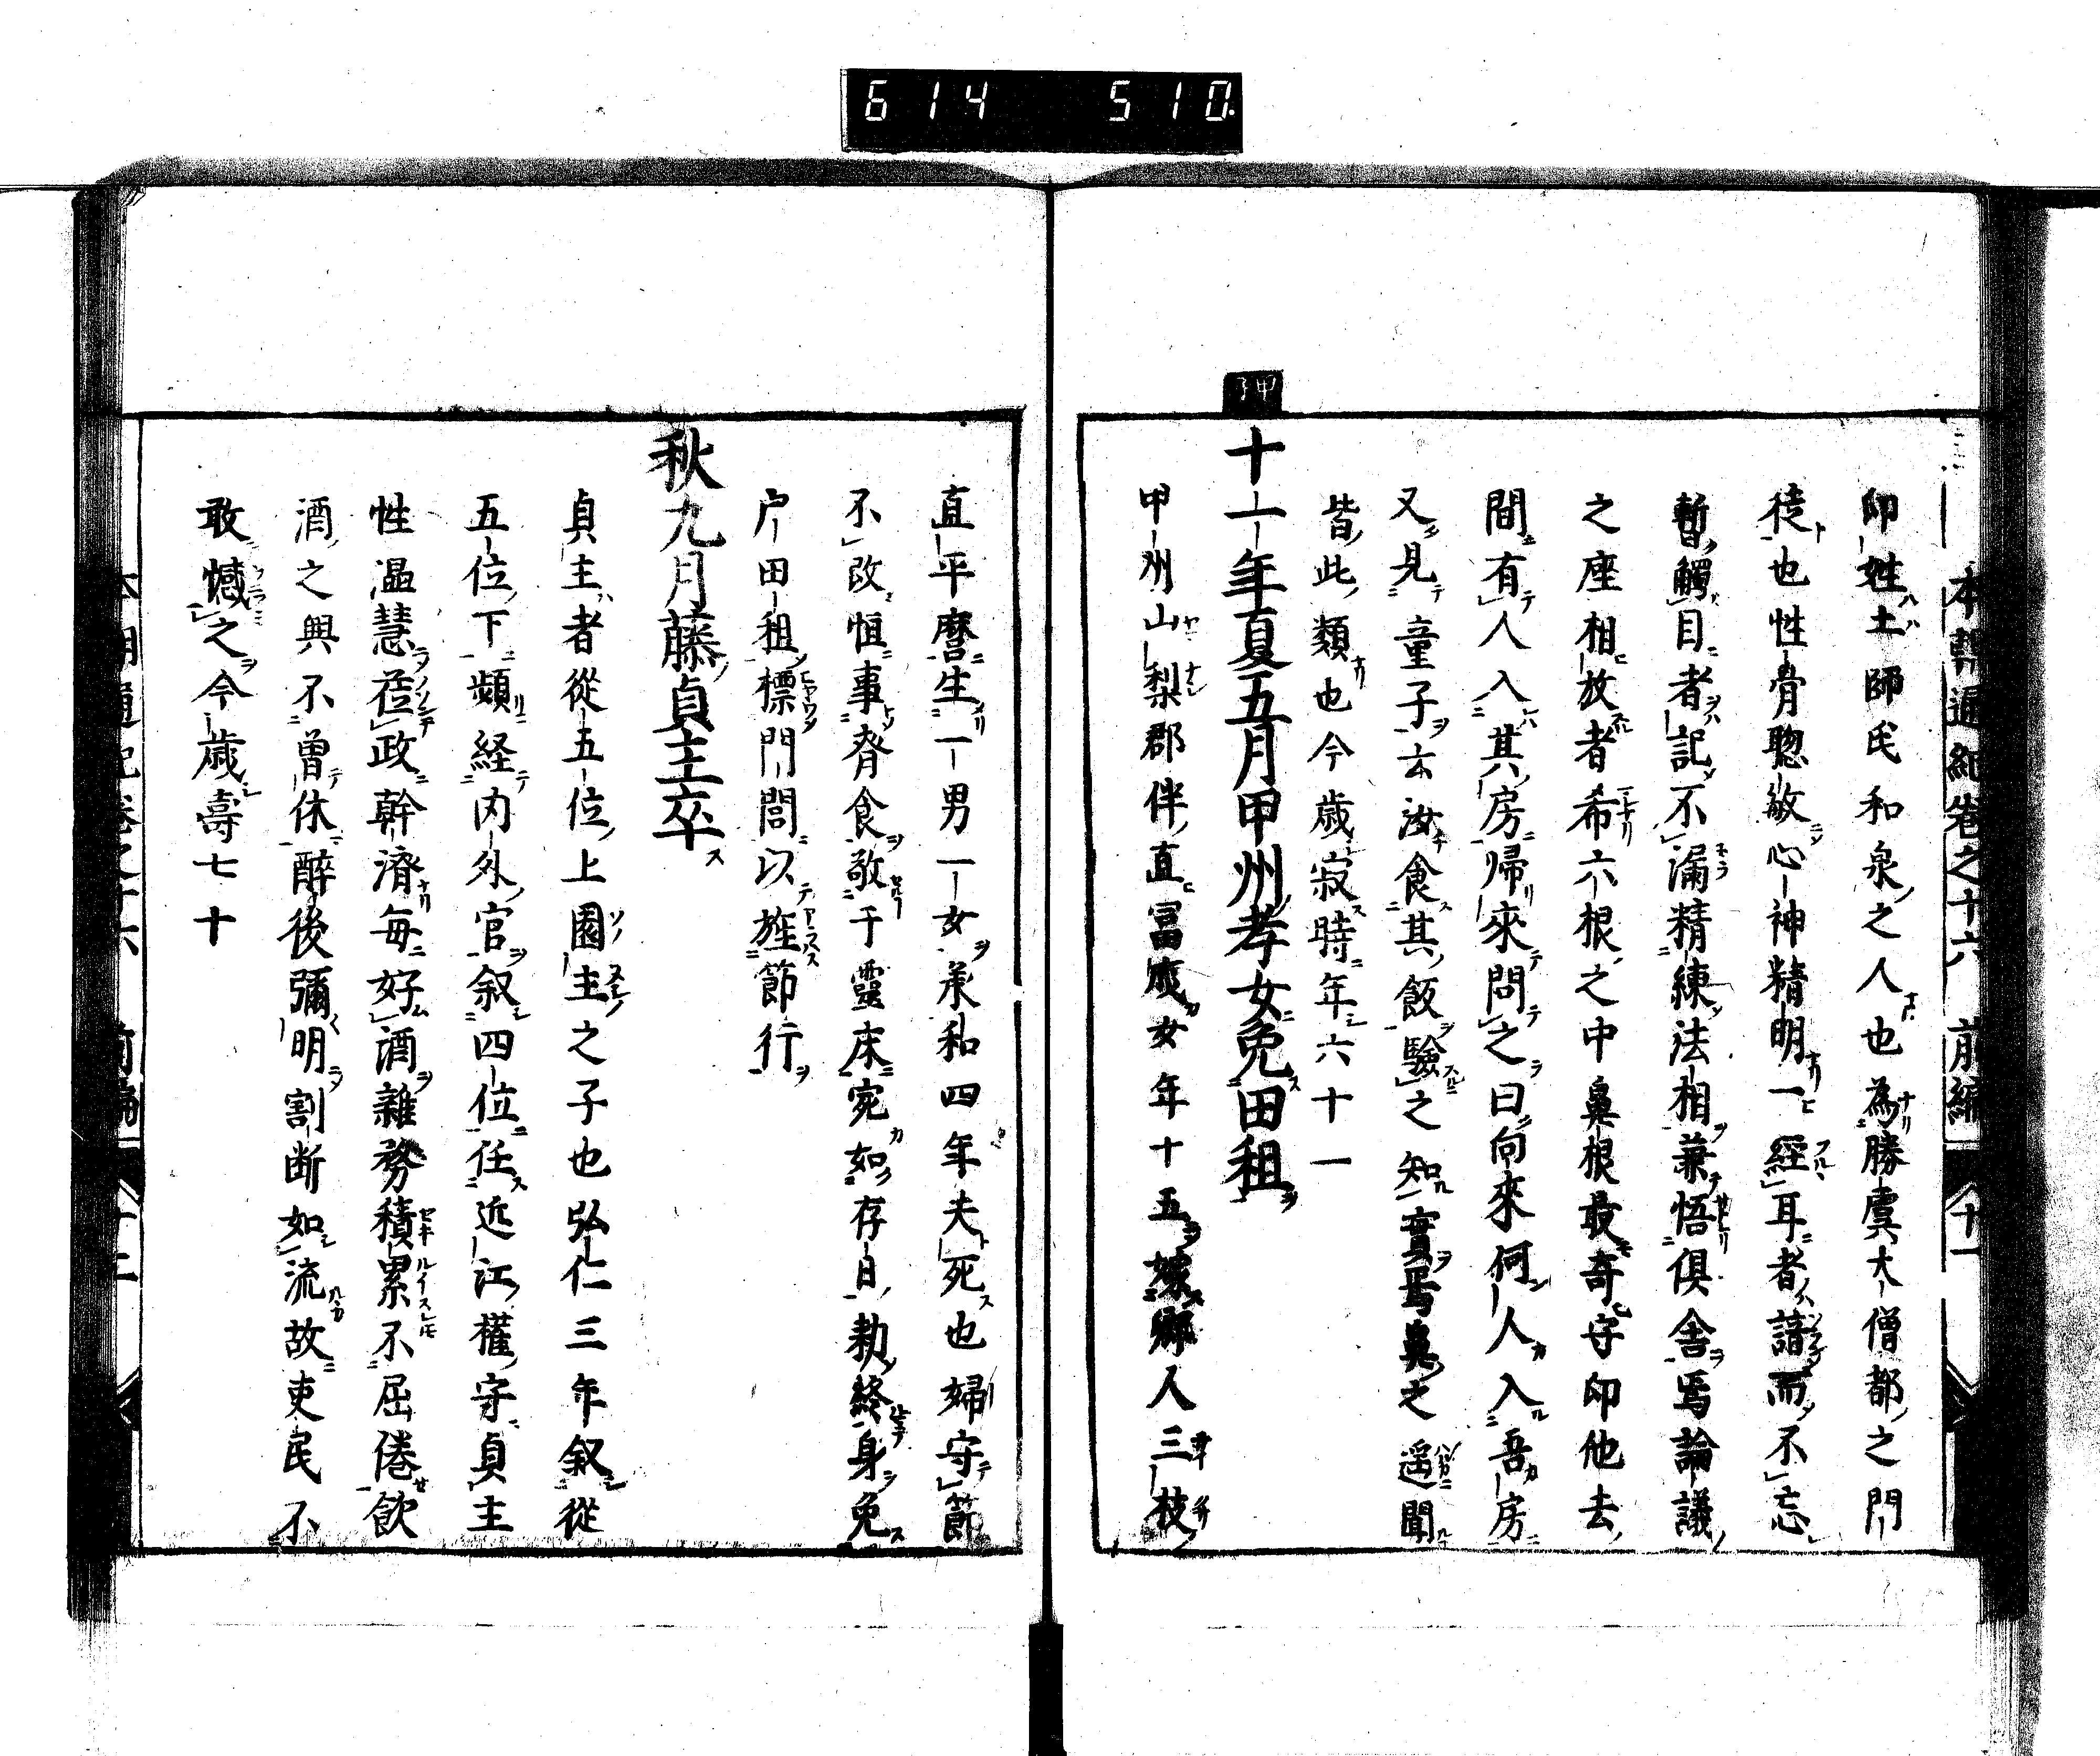 614 510
本朝通紀卷之十六 前編 十一
印姓土師氏和泉之人也為勝虞大僧都之門
徒也性骨聰敏心神精明一經耳者諳而不忘
暫觸目者記不漏精練法相兼悟俱舎焉論議
之座相放者希六根之中鼻根最奇守印他去
間有人入其房帰來問之曰向來何人入吾房
又見童子云汝食其飯驗之知實焉鼻之遥聞
皆此類也今歳寂時年六十一
甲子
十一年夏五月甲州孝女免田租
甲州山梨郡伴直冨成女年十五嫁郷人三枝
直平麿生一男一女承和四年夫死也婦守節
不改恒事齊食敬于靈床宛如存日勅終身免
户田租標門閭以旌節行
秋九月藤貞主卒
貞主者從五位上園主之子也弘仁三年叙從
五位下頻経内外官叙四位任近江權守貞主
性温慧莅政幹濟毎好酒雜務積累不屈倦飲
酒之興不曽休醉後彌明割断如流故吏民不
敢憾之今歳壽七十
本朝通紀卷之十六 前編 十二